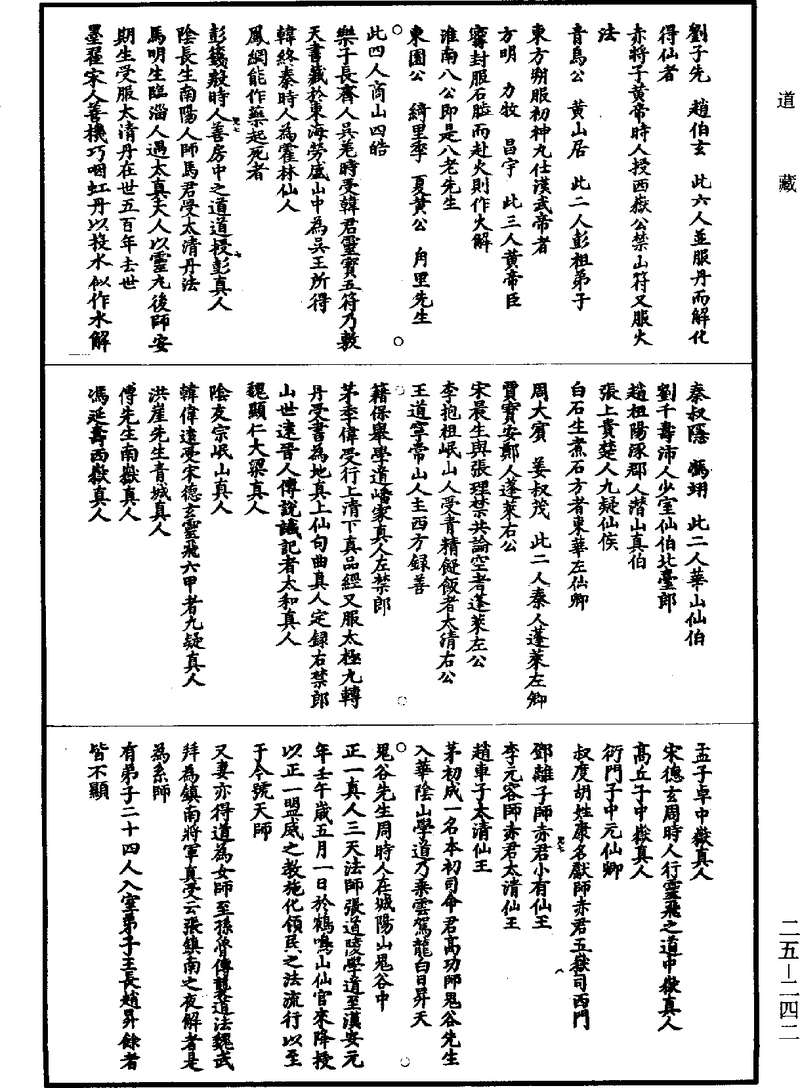 道藏
劉子先　趙伯玄　此六人並服丹而解化
得仙者
赤將子黃帝時人授西嶽公禁山符又服火
法
青烏公　黃山居　此二人彭祖弟子
東方朔服初神丸仕漢武帝者
方明　力牧　昌宇　此三人黃帝臣
甯封服石腦而赴火則作火解
淮南八公即是八老先生
東園公　綺里季　夏黃公　甪里先生
此四人商山四皓
樂子長齊人吳羌時受韓君靈寶五符乃敷
天書藏於東海勞盛山中為吳王所得
韓終秦時人為霍林仙人
鳳綱能作藥起死者
彭籛殷時人善房中之道道授彭真人
陰長生南陽人師馬君受太清丹法
馬明生臨淄人遇太真夫人以靈丸後師安
期生受服太清丹在世五百年去世
墨翟宋人善機巧咽虹丹以投水似作水解
秦叔隱　馮翊　此二人華山仙伯
劉千壽沛人少室仙伯北臺郎
趙祖陽涿郡人潛山真伯
張上貴楚人九疑仙侯
白石生煮石方者東華左仙卿
周大賓　姜叔茂　此二人秦人蓬萊左卿
賈寶安鄭人蓬萊右公
宋晨生與張理禁共論空者蓬萊左公
李抱祖岷山人受青精䭀飯者太清右公
王道寧常山人主西方錄善
籍保舉學道嶓冢真人左禁郎
茅季偉受行上清下真品經又服太極九轉
丹受書為地真上仙句曲真人定錄右禁郎
山世遠晉人傳說讖記者太和真人
魏顯仁大梁真人
陰友宗岷山真人
韓偉遠受宋德玄靈飛六甲者九疑真人
洪崖先生青城真人
傅先生南嶽真人
馮延壽西嶽真人
孟子卓中嶽真人
宋德玄周時人行靈飛之道中嶽真人
高丘子中嶽真人
衍門子中元仙卿
叔度胡姓康名獻師赤君五嶽司西門
鄧離子師赤君小有仙王
李元容師赤君太清仙王
趙車子太清仙王
茅初成一名本初司命君高功師鬼谷先生
入華陰山學道乃乘雲駕龍白日昇天
鬼谷先生周時人在城陽山鬼谷中
正一真人三天法師張道陵學道至漢安元
年壬午歲五月一日於鶴鳴山仙官來降授
以正一盟威之教施化領民之法流行以至
于今號天師
又妻亦得道為女師至孫魯傳襲道法魏武
拜為鎮南將軍真受云張鎮南之夜解者是
為系師
有弟子二十四人入室弟子王長趙昇餘者
皆不顯
二五－二四二